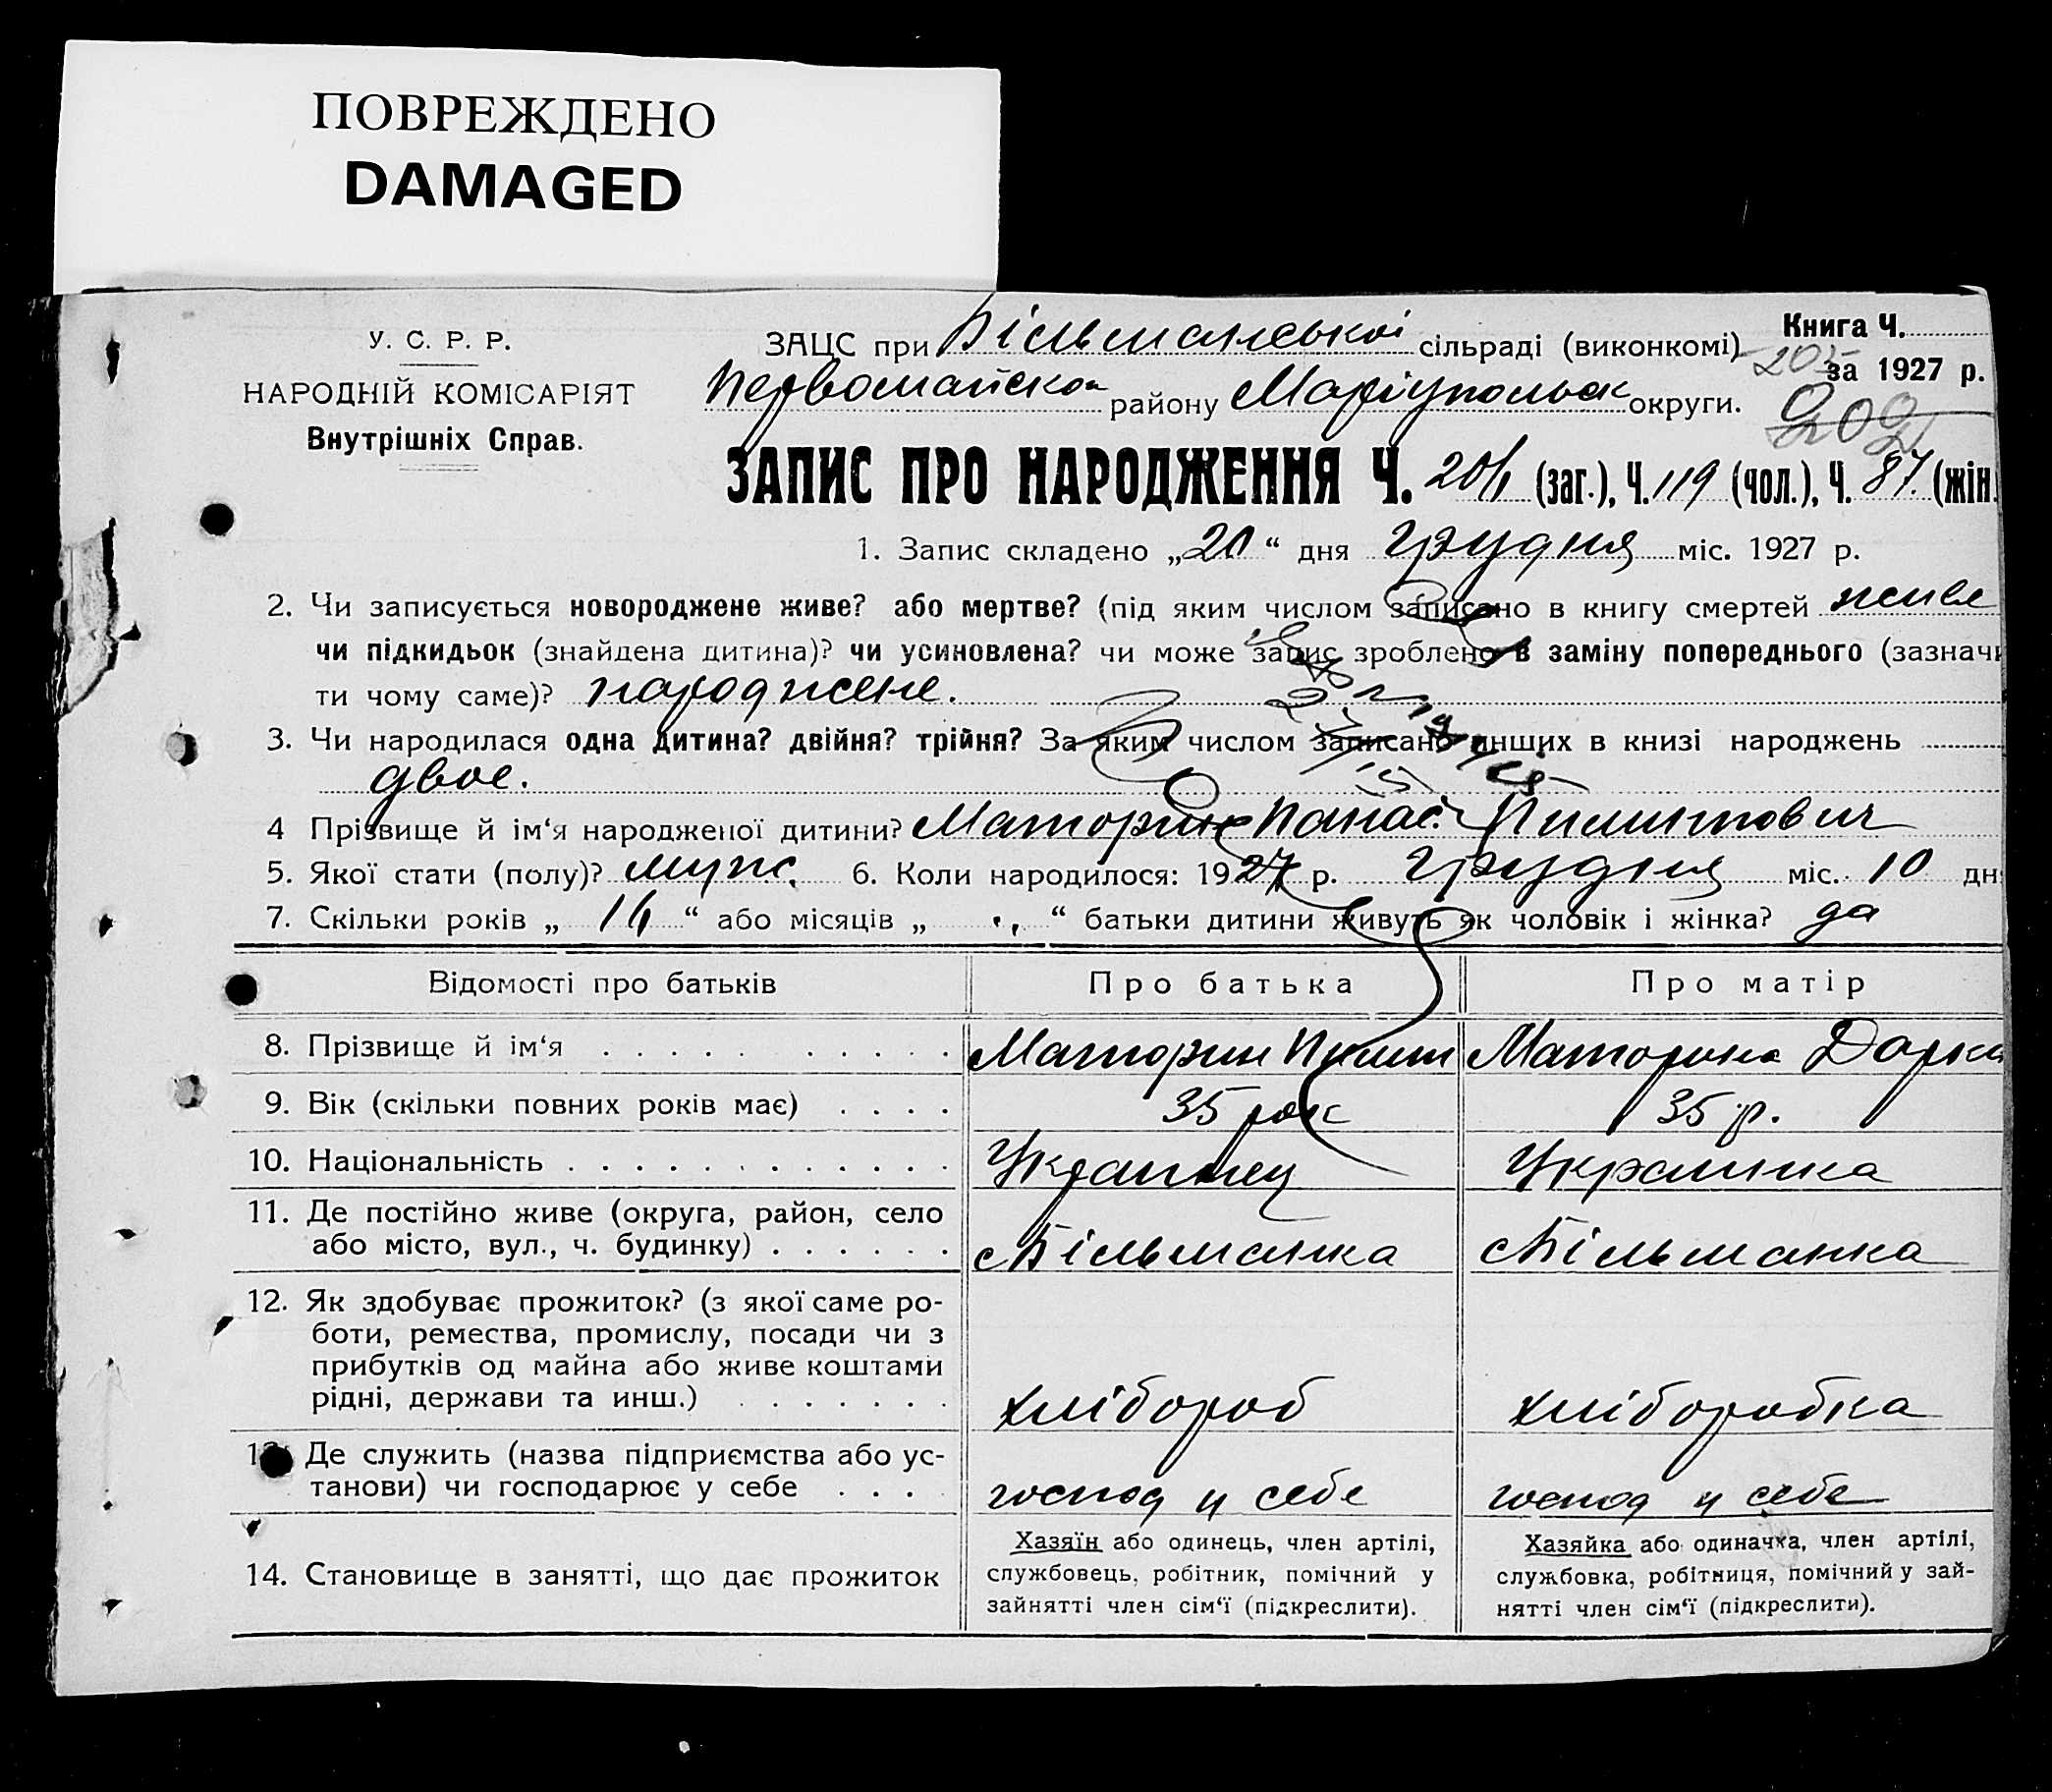 ПОВРЕЖДЕНО
DAMAGED
У. С. Р. Р.
НАРОДНІЙ КОМІСАРІЯТ
Внутрішніх Справ.
ЗАЦС при Більманської сільраді (виконкомі)
Первомайског району Маріупольськ округи.
Книга Ч.
205
за 1927 р.
209
ЗАПИС ПРО НАРОДЖЕННЯ Ч. (заг.), Ч. 119 (чол.), Ч. 87. (жін.
1. Запис складено „20“ дня грудня міс. 1927 р.
2. Чи записується новороджене живе? або мертве? (під яким числом записано в книгу смертей живе
чи підкидьок (знайдена дитина)? чи усиновлена? чи може запис зроблено в заміну попереднього (зазначи
ти чому саме)? народжене.
3. Чи народилася одна дитина? двійня? трійня? За яким числом записано инших в книзі народжень
двое.
4 Прізвище й ім‘я народженої дитини? Маторин Панас Пилипович
5. Якої стати (полу)? муж. 6. Коли народилося: 1927 р. грудня міс. 10 дн
7. Скільки років „ “ або місяців „ “ батьки дитини живуть як чоловік і жінка? да
Відомості про батьків
Про батька
Про матір
8. Прізвище й ім‘я Маторин Пилип Маторина Дарья
9. Вік (скільки повних років має) 35 рок 35 р.
10. Національність Украинец Украинка
11. Де постійно живе (округа, район, село
або місто, вул., ч. будинку) с Більманка с Більманка
12. Як здобуває прожиток? (з якої саме ро-
боти, ремества, промислу, посади чи з
прибутків од майна або живе коштами
рідні, держави та инш.) хлібороб хлібробка
13. Де служить (назва підприємства або ус-
танови) чи господарює у себе господ у себе господ у себе
14. Становище в занятті, що дає прожиток
Хазяїн або одинець, член артілі,
службовець, робітник, помічний у
зайнятті член сім‘ї (підкреслити).
Хазяйка або одиначка, член артілі,
службовка, робітниця, помічний у зай-
нятті член сім‘ї (підкреслити).